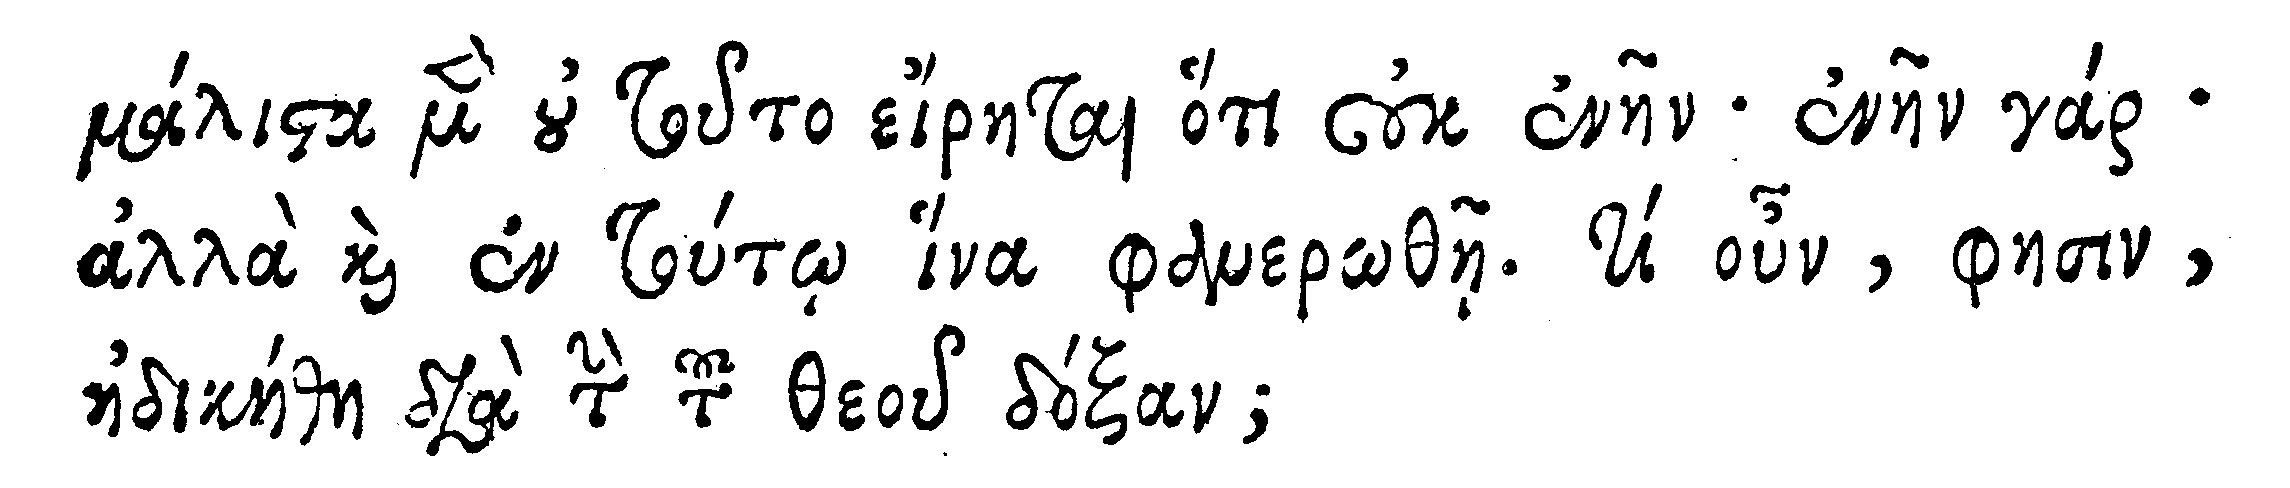 μάλιστα μὲν οὐ τοῦτο εἴρηται ὅτι οὐκ ἐνῆν· ἐνῆν γάρ·
ἀλλὰ καὶ ἐν τούτῳ ἵνα φανερωθῇ. Τί οὖν, φησιν,
ἠδικήθη διὰ τὴν τοῦ θεοῦ δόξαν;